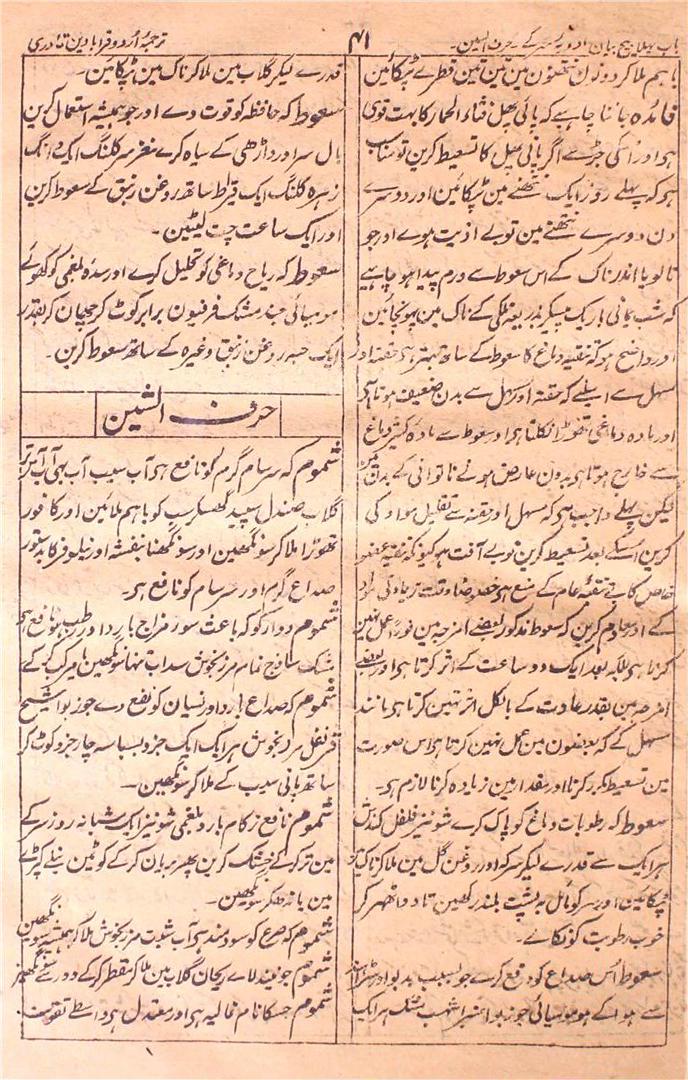 باب پہلا بیچ بیان ادویہ سر کے - حرف السین - ۴۱ ترجمہ اُردو قرابادین قادری
باہم ملا کر دونون نتھنون مین تین تین قطرے ٹپکائین
فائدہ جاننا چاہیے کہ پانی پھل قثاء الحمار کا بہت قوی
ہی اور اسکی جڑ سے اگر پانی پھل کا تسعیط کرین تو مناسب
ہو کہ پہلے روز ایک نتھنے مین ٹپکائین اور دوسرے
دن دوسرے نتھنے مین تو بے اذیت ہوے اور جو
تالو یا اندر ناک کے اس سعوط سے ورم پیدا ہو چاہیے
کہ شب یمانی باریک پیسکر بذریعہ نلکی کے ناک مین پہونچائین
اور واضح ہو کہ تنقیہ دماغ کا سعوط کے ساتھ بہتر ہی حقنہ اور
مسہل سے اسلیے کہ حقنہ اور مسہل سے بدن ضعیف ہوتا ہی
اور مادہ دماغی تھوڑا نکلتا ہی اور سعوط سے مادہ کثیر دماغ
سے خارج ہوتا ہی بدون عارض ہونے ناتوانی کے بدن مین
لیکن پہلے واجب ہی کہ مسہل اور حقنہ سے تقلیل مواد کی
کرین اسکے بعد تسعیط کرین تو بے آفت ہو کیونکہ تنقیہ عضو
خاص کا بے تنقیہ عام کے منع ہی خصوصًا وقت زیادتی مواد
کے اور معلوم کرین کہ سعوط مذکور بعضے امزجہ مین فورًا عمل نہین
کرتا ہی بلکہ بعد ایک دو ساعت کے اثر کرتا ہی اور بعضے
امزجہ مین بقدر عادت کے بالکل اثر نہین کرتا ہی مانند
مسہل کے کہ بعضون مین عمل نہین کرتا ہی اس صورت
مین تسعیط مکرر کرنا اور مقدار مین زیادہ کرنا لازم ہی۔
سعوط کہ رطوبات دماغ کو پاک کرے شونیز فلفل کندش
ہر ایک سے قدرے لیکر سرکہ اور روغن گل مین ملا کر ناک مین
ٹپکائین اور سر کو مائل بہ پشت بلند رکھین تا دوا ٹھہر کر
خوب رطوبت کو نکالے۔
سعوط اُس صداع کو دفع کرے جو بسبب بدبو اور
سے ہو اکے مومیائی جوزبوا عنبر اشہب مشک ہر ایک
قدرے لیکر گلاب مین ملا کر ناک مین ٹپکائین۔
سعوط کہ حافظہ کو قوت دے اور جو ہمیشہ استعمال کرین
بال سر اور داڑھی کے سیاہ کرے مغز سر کلنگ ایک دانگ
زہرہ کلنگ ایک قیراط ساتھ روغن زنبق کے سعوط کرین
اور ایک ساعت چت لیٹین۔
سعوط کہ ریاح دماغی کو تحلیل کرے اور سدہ بلغمی کو کھولے
مومیائی جند مشک فرفیون برابر کوٹ کر چھان کر بقدر
ایک حبہ روغن زنبق وغیرہ کے ساتھ سعوط کرین۔
حرف الشین
شموم کہ سرسام گرم کو نافع ہی آب سیب آب بہی آب
گلاب صندل سپید گھسکر سب کو باہم ملائین اور کافور
تھوڑا ملا کر سونگھین اور سونگھنا بنفشہ اور نیلوفر کا بدستور
صداع گرم اور سرسام کو نافع ہی۔
شموم دوار کو کہ باعث سوء مزاج بارد اور رطب ہو نافع ہی
مشک سافج نمام مرزنجوش سداب تنہا سونگھین یا مرکب کرکے
شموم کہ صداع بارد اور نسیان کو نفع دے جوزبوا شیح
قرنفل مرزنجوش ہر ایک ایک جزو بسباسہ چار جزو کوٹ کر
ساتھ پانی سیب کے ملا کر سونگھین۔
شموم نافع زکام بارد بلغمی شونیز ایک شبانہ روز سرکے
مین تر کرکے خشک کرین پھر بریان کرکے کوٹین نیلے کپڑے
مین باندھکر سونگھین۔
شموم کہ صرع کو سودمند ہی آب شبت مرزنجوش ملا کر ہمیشہ سونگھین
شموم جو نیند لاے ریحان گلاب مین ملا کر مقطر کرکے سونگھین
شموم جسکا نام نمالیہ ہی اور معتدل ہی واسطے تقویت